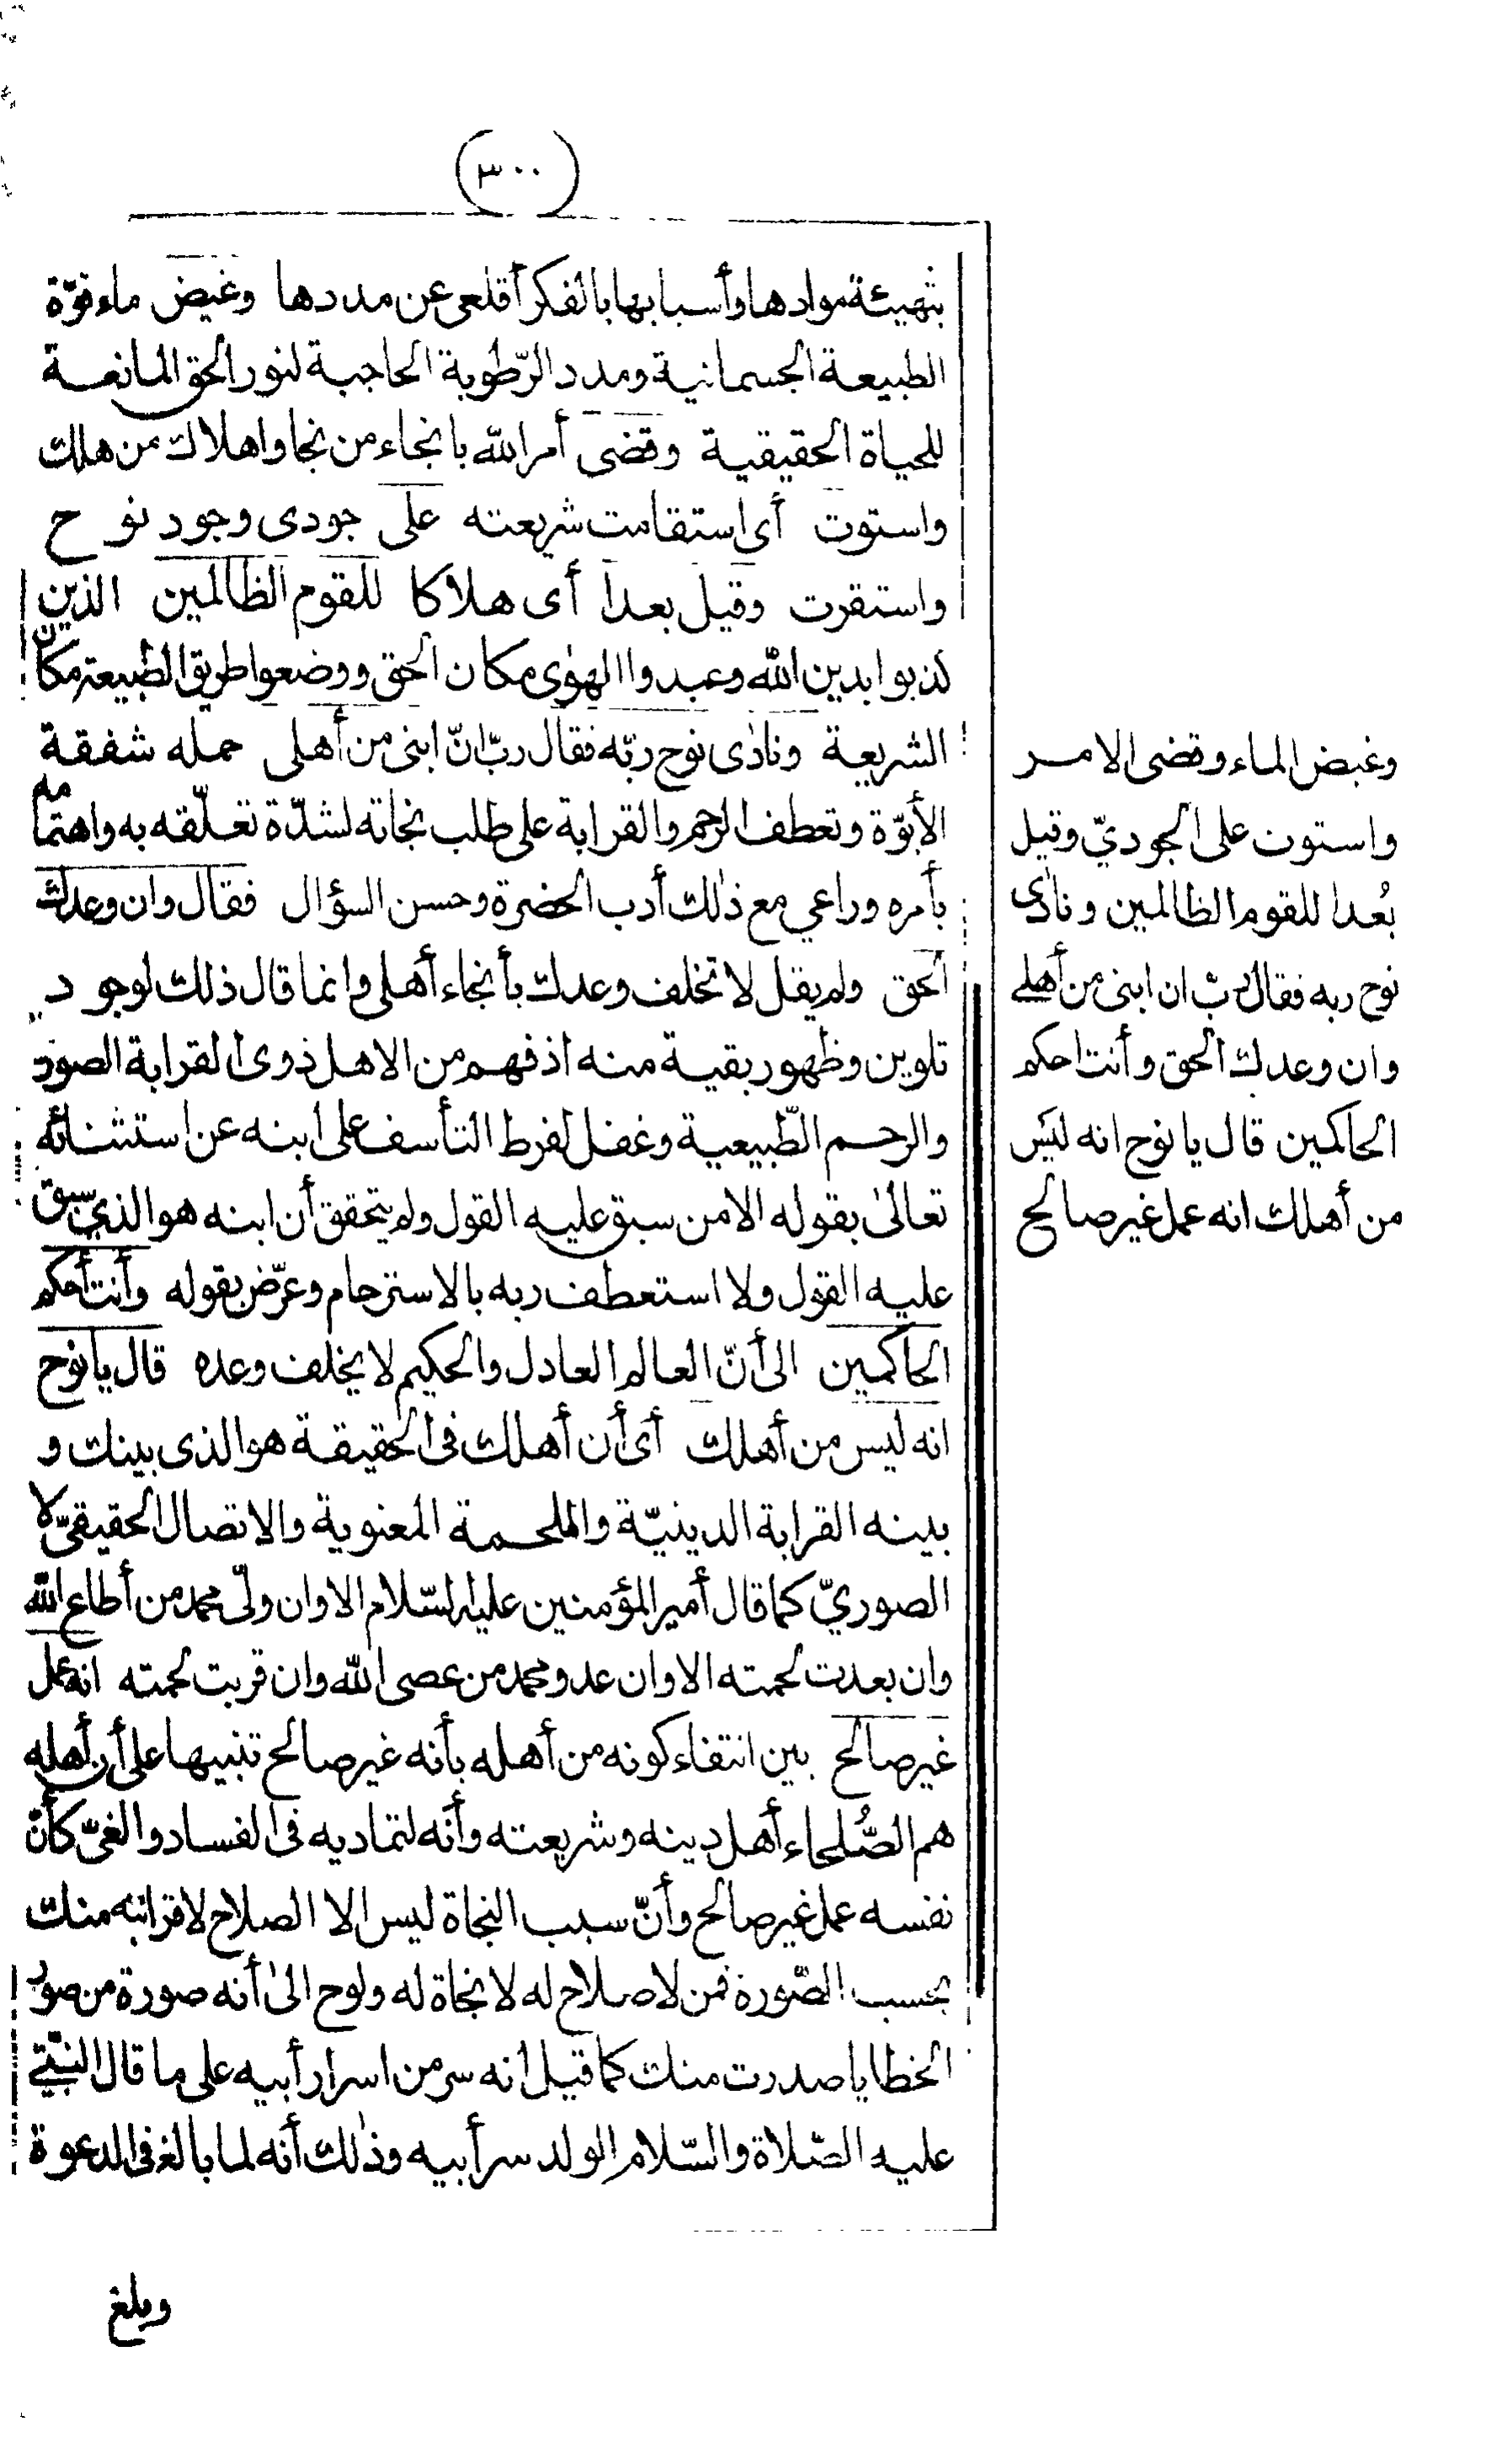 (٣٠٠)
بتهيئة موادها وأسبابها بالفكر أقلعى عن مددها وغيض ماء قوّة
الطبيعة الجسمانية ومدد الرّطوبة الحاجبة لنور الحق المانعة
للحياة الحقيقية وقضى أمر الله بانجاء من نجا واهلاك من هلك
واستوت أى استقامت شريعته على جودى وجود نوح
واستقرت وقيل بعدا أى هلاكا للقوم الظالمين الذين
كذبوا بدين الله وعبدوا الهوٰى مكان الحق ووضعوا طريق الطبيعة مكان
الشريعة ونادٰى نوح ربّه فقال ربّ انّ ابنى من أهلى حمله شفقة
الأبوّة وتعطف الرحم والقرابة على طلب نجاته لشدّة تعلّقه به واهتمامه
بأمره وراعي مع ذٰلك أدب الحضرة وحسن السؤال فقال وان وعدك
الحق ولم يقل لا تخلف وعدك بأنجاء أهلى وانما قال ذلك لوجود
تلوين وظهور بقية منه اذ فهم من الاهل ذوى القرابة الصور
والرحم الطّبيعية وغفل لفرط التأسف على ابنه عن استثنائه
تعالىٰ بقوله الا من سبق عليه القول ولم يتحقق أن ابنه هو الذي سبق
عليه القول ولا استعطف ربه بالاسترحام وعرّض بقوله وأنت أحكم
الحاكمين الى أنّ العالم العادل والحكيم لا يخلف وعده قال يا نوح
انه ليس من أهلك أى أن أهلك فى الحقيقة هو الذى بينك و
بينه القرابة الدينيّة والملحمة المعنوية والاتصال الحقيقىّ لا
الصوريّ كما قال أمير المؤمنين عليه السّلام الا وان ولّى محمد من أطاع الله
وان بعدت لحمته الا وان عدو محمد من عصى الله وان قربت لحمته انه عمل
غير صالح بين انتفاء كونه من أهله بأنه غير صالح تنبيها على أن أهله
هم الصُّلحاء أهل دينه وشريعته وأنه لتماديه فى الفساد والغىّ كأنّ
نفسه عمل غير صالح وأنّ سبب النجاة ليس الا الصلاح لا قرابته منك
بحسب الصّورة فمن لا صلاح له لا نجاة له ولوح الىٰ أنه صورة من صور
الخطايا صدرت منك كما قيل انه سر من اسرار أبيه على ما قال النبىّ
عليه الصّلاة والسّلام الولد سر أبيه وذٰلك أنه لما بالغ فى الدعوة
وبلغ
وغيض الماء وقضى الامر
واستوت على الجوديّ وقيل
بُعدا للقوم الظالمين ونادٰى
نوح ربه فقال رب ان ابنى من أهلى
وان وعدك الحق وأنت احكم
الحاكمين قال يا نوح انه ليس
من أهلك انه عمل غير صالح